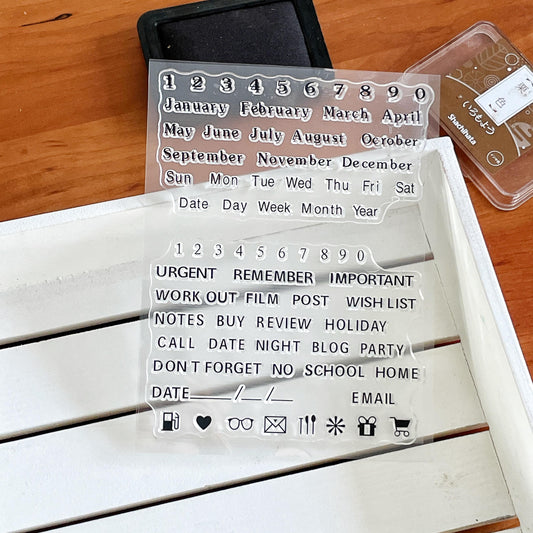 1 2 3 4 5 6 7 8 9 0
January February March April
May June July August October
September November December
Sun Mon Tue Wed Thu Fri Sat
Date Day Week Month Year
1 2 3 4 5 6 7 8 9 0
URGENT REMEMBER IMPORTANT
WORK OUT FILM POST WISH LIST
NOTES BUY REVIEW HOLIDAY
CALL DATE NIGHT BLOG PARTY
DON T FORGET NO SCHOOL HOME
DATE____/__/__ EMAIL
いろもよう
Shachihata